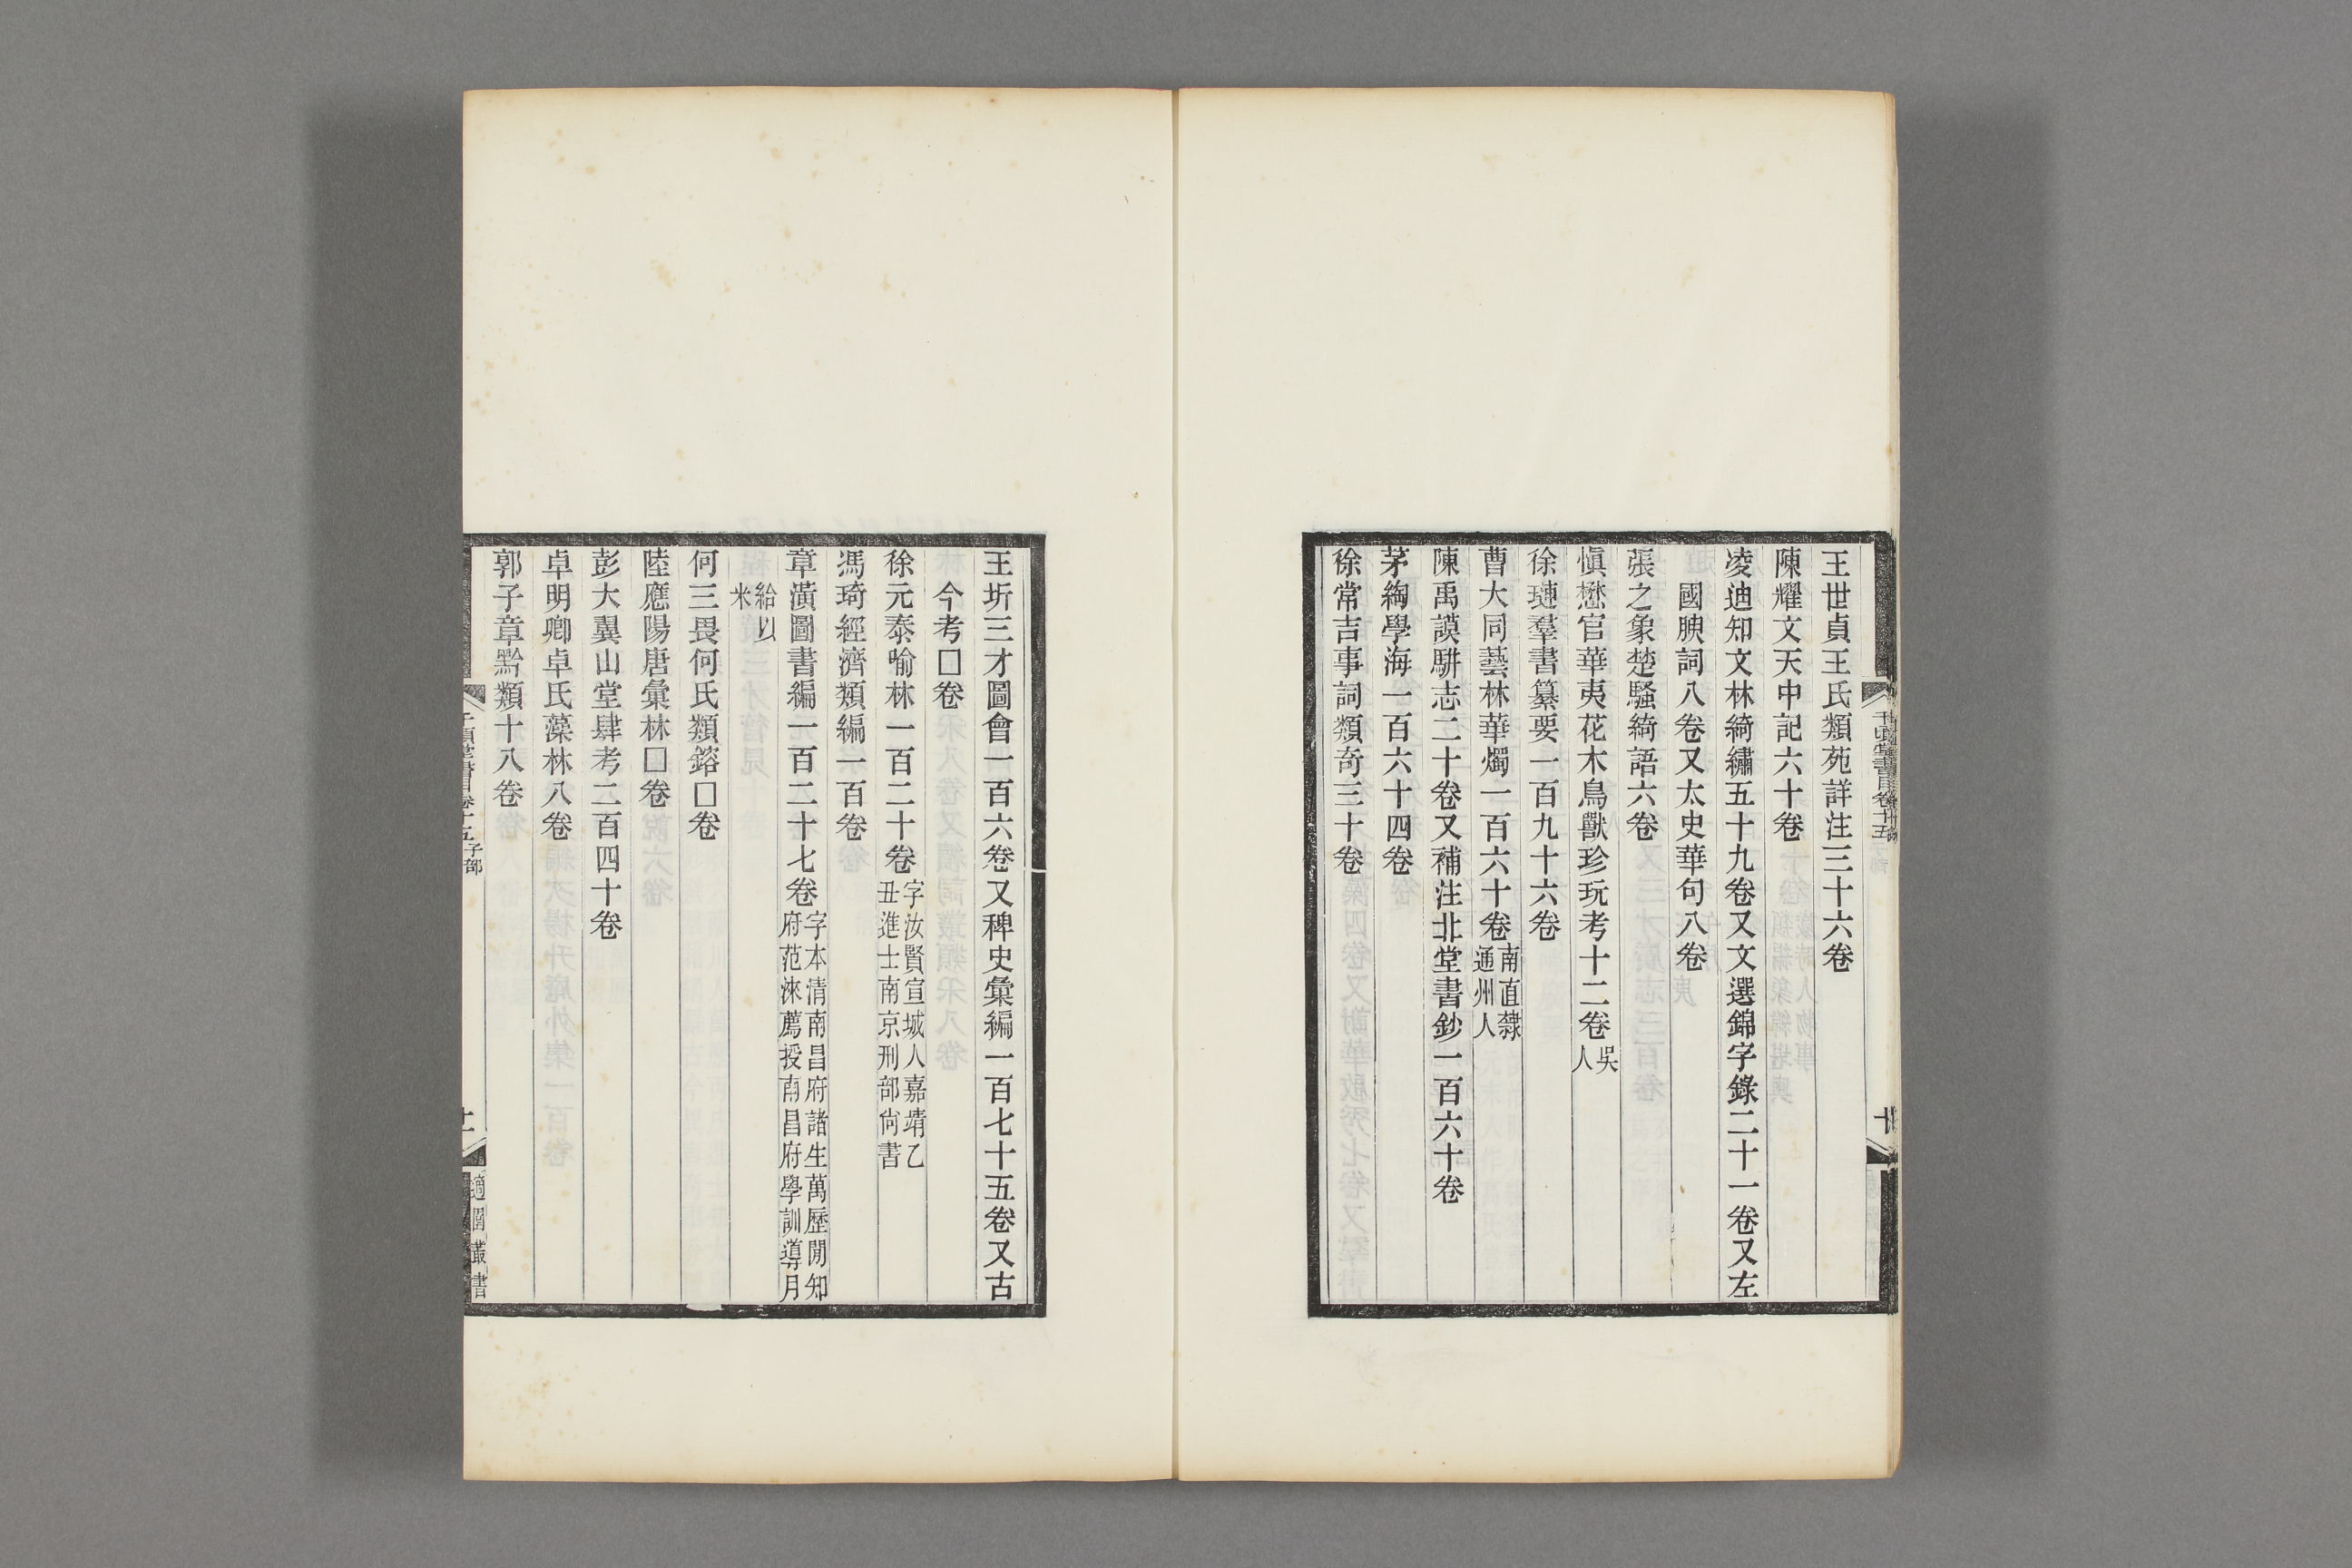 王世貞王氏類苑詳注三十六卷
陳耀文天中記六十卷
凌迪知文林綺繡五十九卷又文選錦字錄二十一卷又左
國腴詞八卷又太史華句八卷
張之象楚騷綺語六卷
愼懋官華夷花木鳥獸珍玩考十二卷吳
人
徐璉羣書纂要一百九十六卷
曹大同藝林華燭一百六十卷南直隸
通州人
陳禹謨駢志二十卷又補注北堂書鈔一百六十卷
茅綯學海一百六十四卷
徐常吉事詞類奇三十卷
王圻三才圖會一百六卷又稗史彙編一百七十五卷又古
今考□卷
徐元泰喻林一百二十卷字汝賢宣城人嘉靖乙
丑進士南京刑部尙書
馮琦經濟類編一百卷
章潢圖書編一百二十七卷字本清南昌府諸生萬歷閒知
府范淶薦授南昌府學訓導月
給以
米
何三畏何氏類鎔□卷
陸應陽唐彙林□卷
彭大翼山堂肆考二百四十卷
卓明卿卓氏藻林八卷
郭子章黔類十八卷
千頃堂書目卷十五子部
十一
適園叢書